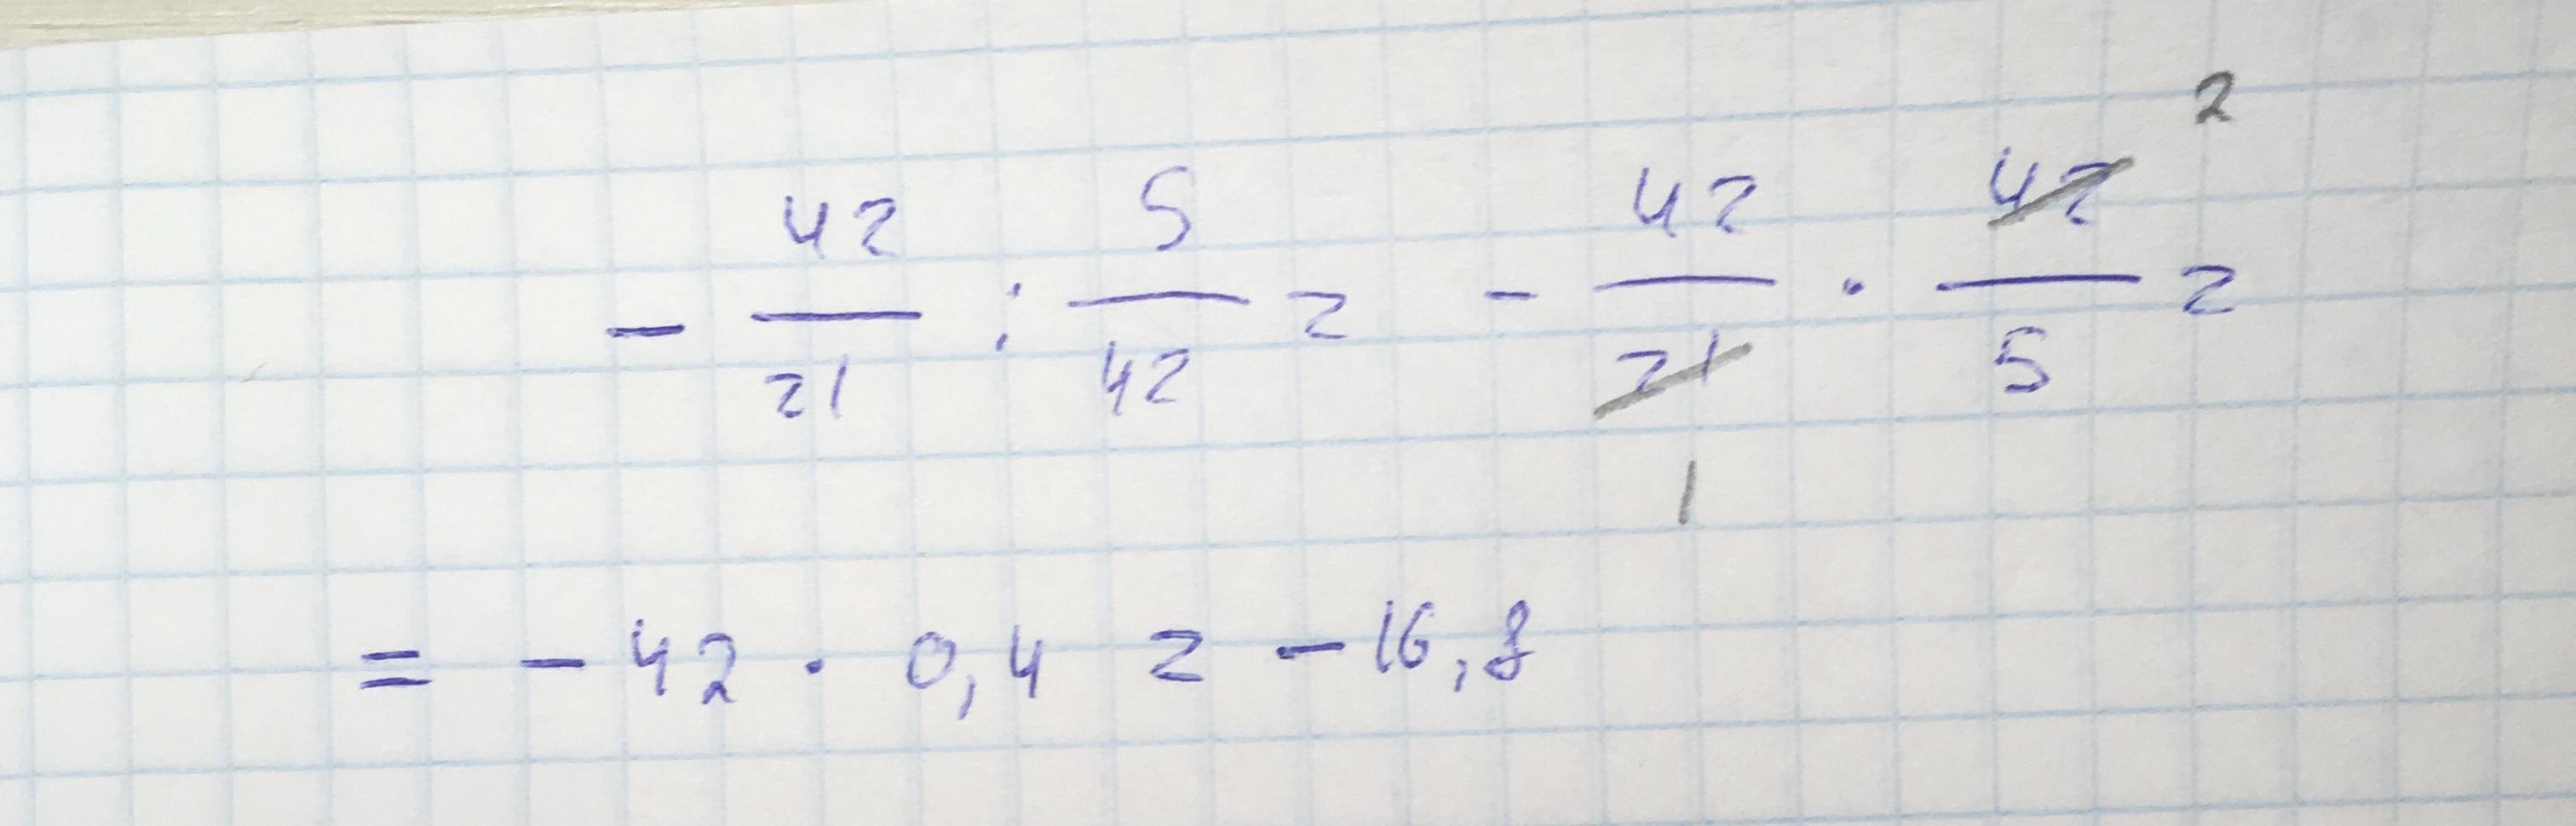 2
- 42/21 : 5/42 = - 42/21 · 42/5 =
1
= - 42 · 0,4 = - 16,8